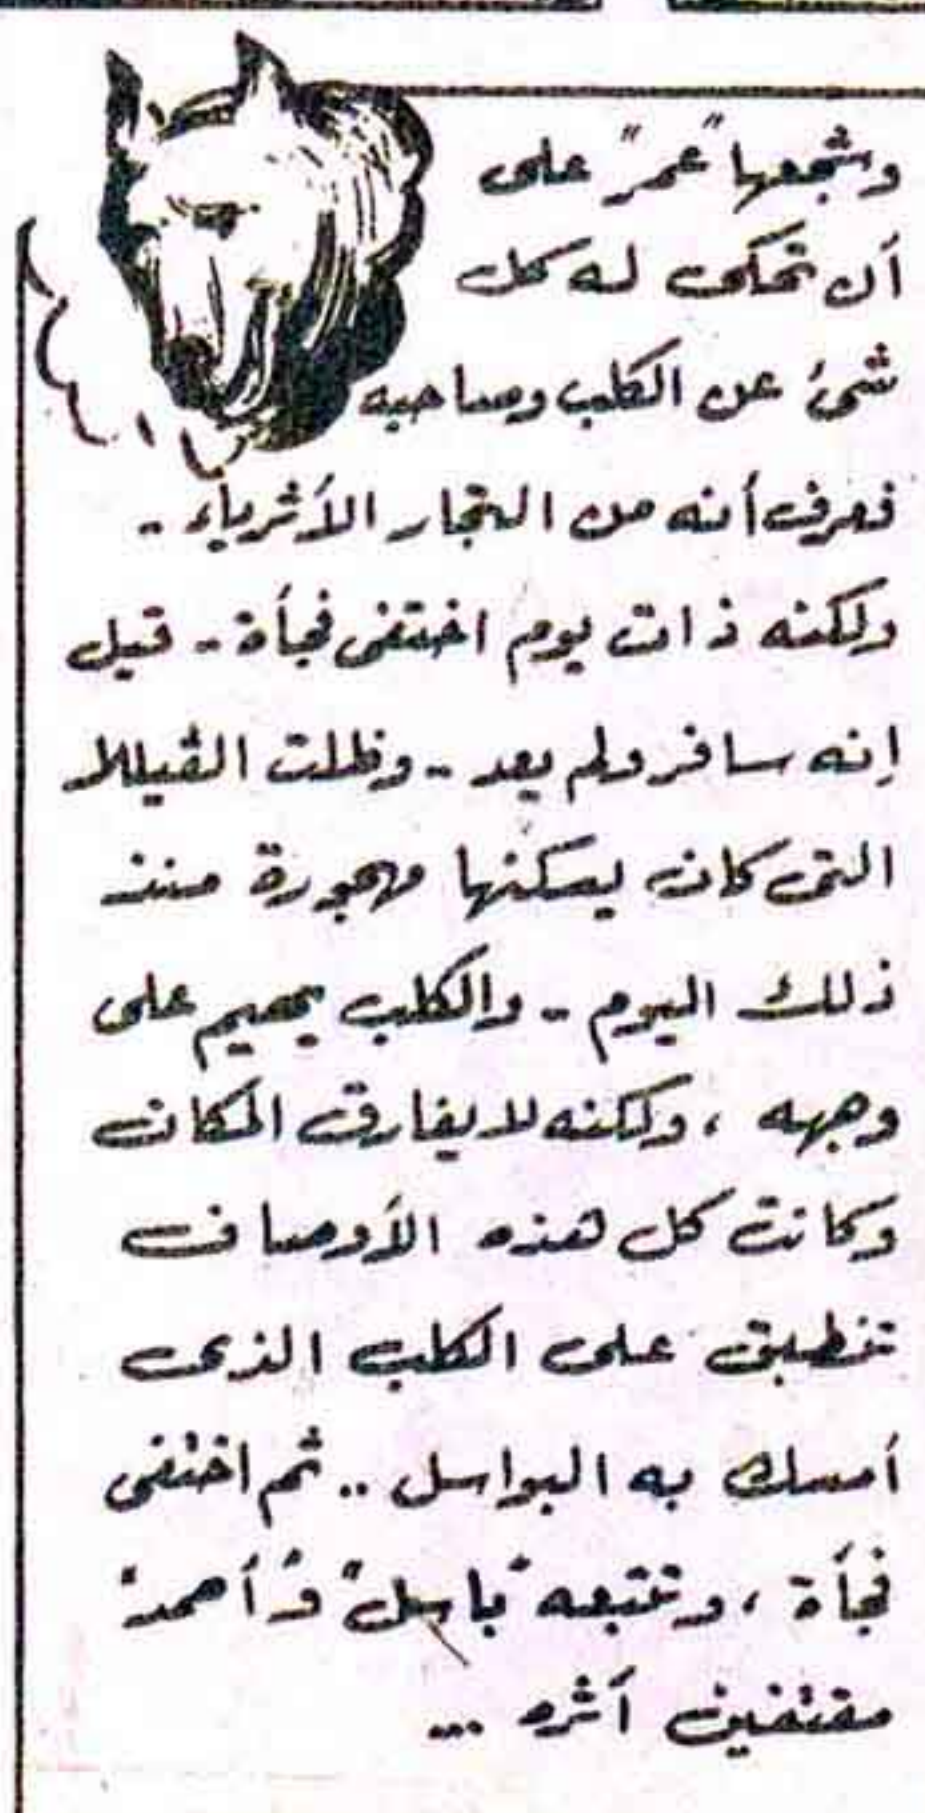 وشجعها "عمر" على
أن تحكى له كل
شئ عن الكلب وصاحبه
فعرف أنه من التجار الأثرياء ..
ولكنه ذات يوم اختفى فجأة .. قيل
إنه سافر ولم يعد .. وظلت الڤيللا
التى كان يسكنها مهجورة منذ
ذلك اليوم .. والكلب يهيم على
وجهه ، ولكنه لا يفارق المكان
وكانت كل هذه الأوصاف
تنطبق على الكلب الذى
أمسك به البواسل .. ثم اختفى
فجأة ، وتتبعه "باسل" و"أحمد"
مقتفين أثره ...